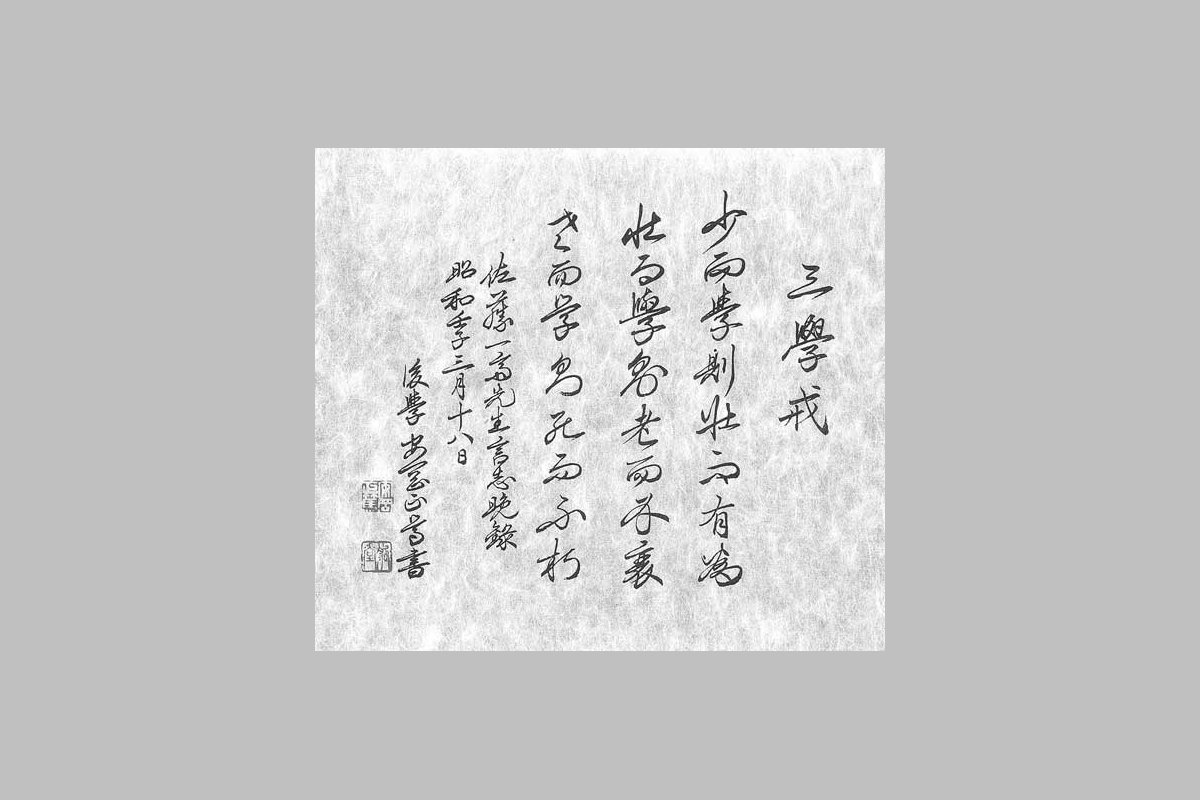 三學戒
少而學則壯而有為
壯而學則老而不衰
老而学則死而不朽
佐藤一斎先生言志晩錄
昭和壬子三月十八日
後學安岡正篤書